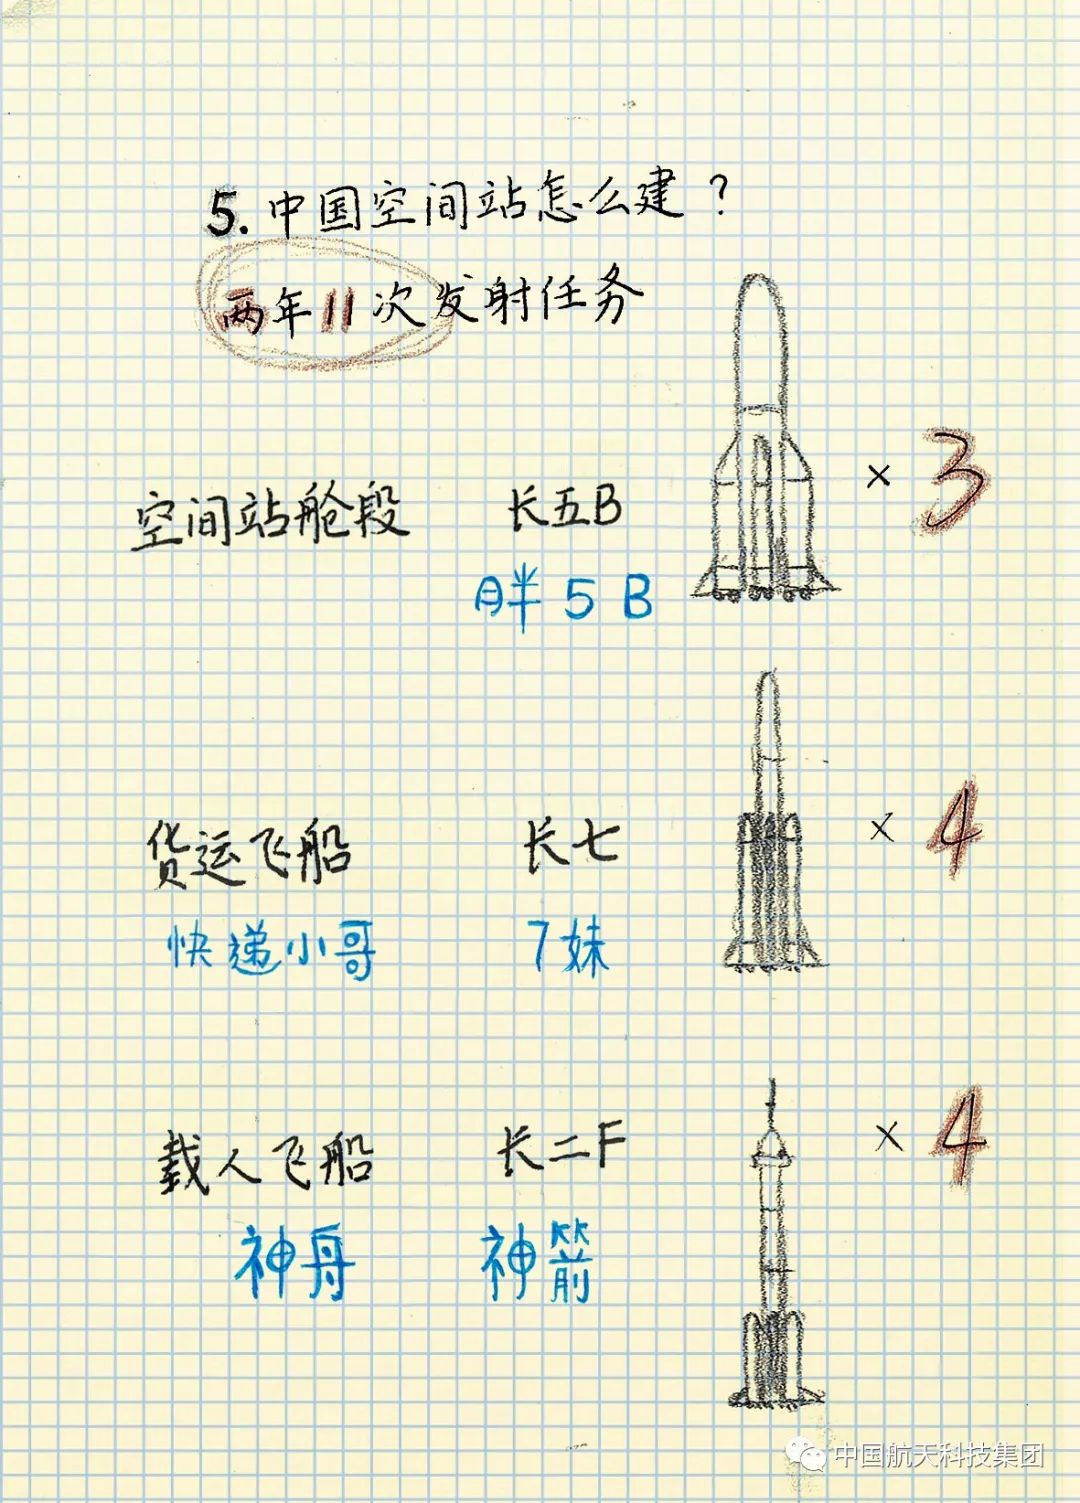 5. 中国空间站怎么建？
两年11次发射任务
空间站舱段 长五B ×3
胖5B
货运飞船 长七 ×4
快递小哥 7妹
载人飞船 长二F ×4
神舟 神箭
中国航天科技集团